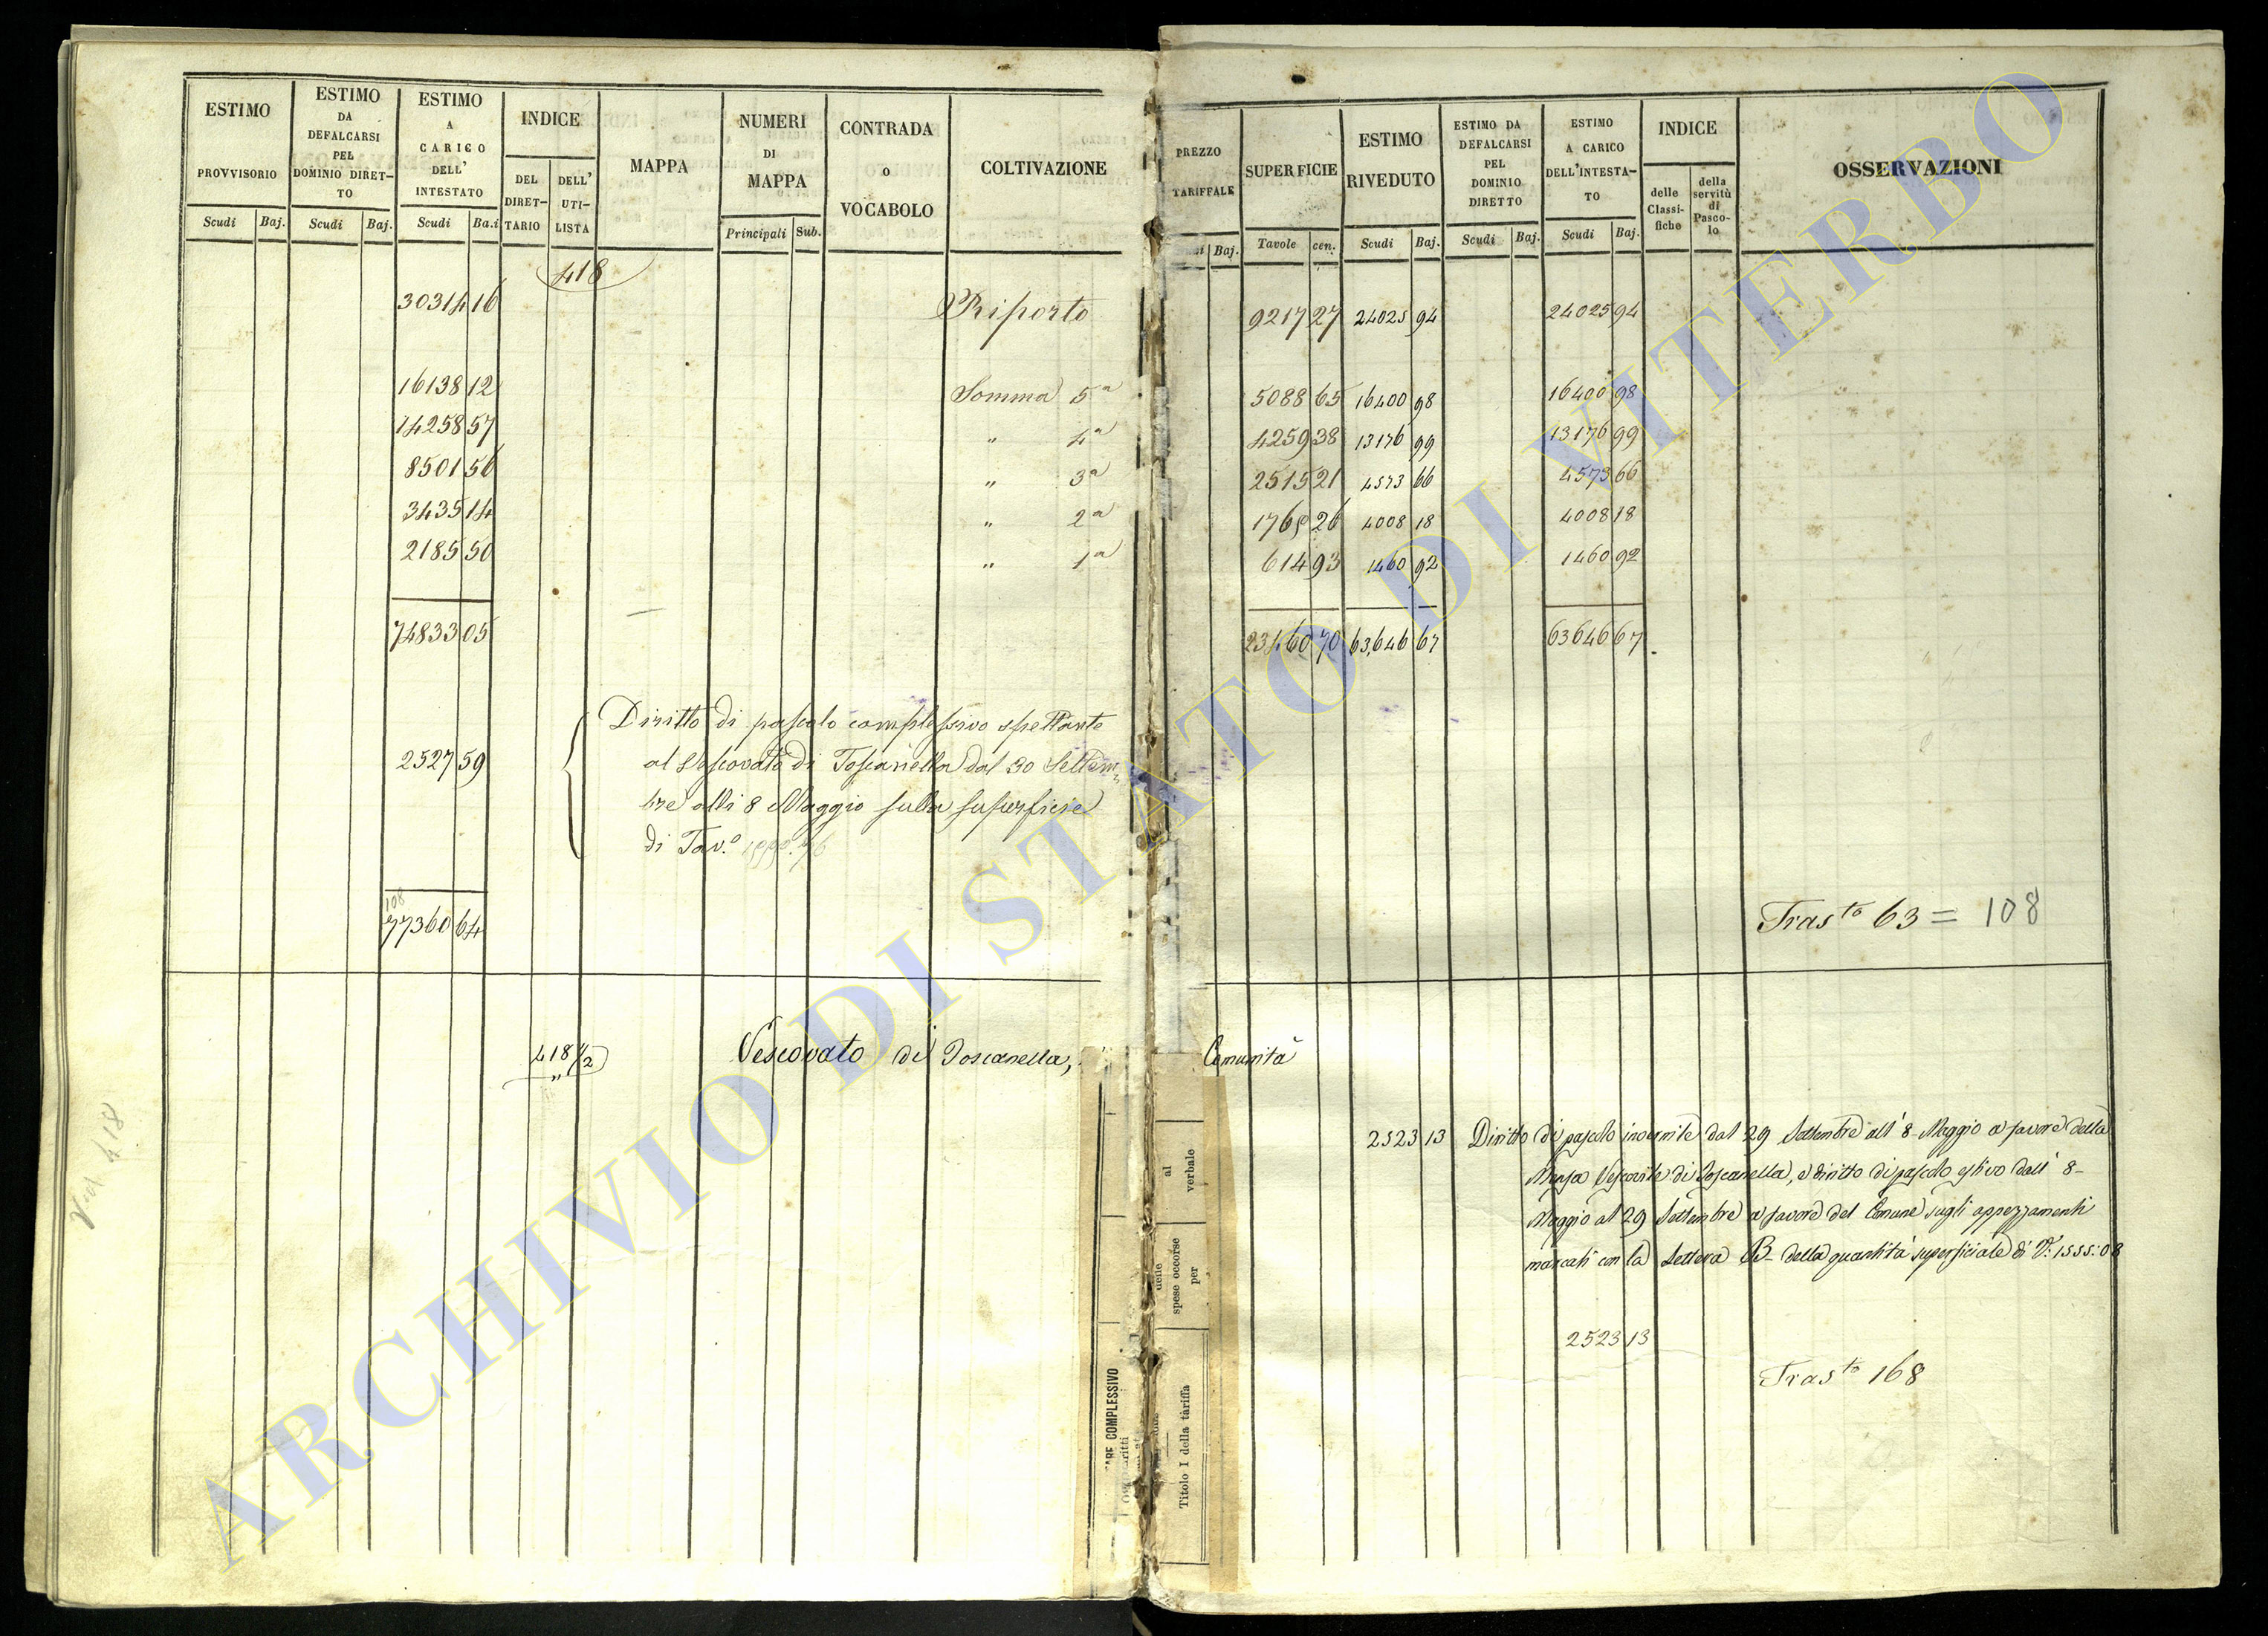 ESTIMO
PROVVISORIO
ESTIMO
DA
DEFALCARSI
PEL
DOMINIO DIRET-
TO
ESTIMO
A
CARICO
DELL'
INTESTATO
INDICE
DEL
DIRET-
TARIO
DELL'
UTI-
LISTA
MAPPA
NUMERI
DI
MAPPA
CONTRADA
o
VOCABOLO
COLTIVAZIONE
Scudi Baj. Scudi Baj. Scudi Ba.i
Principali Sub.
418
30314 16 Riporto
16138 12 Somma 5a
14258 57 " 4a
8501 56 " 3a
3435 14 " 2a
2185 50 " 1a
74833 05
Diritto di pascolo complessivo spettante
2527 59 al Vescovato di Toscanella dal 30 Settem
bre alli 8 Maggio sulla superficie
di Tav.e
108
77360 64
418 1/2 Vescovato di Toscanella,
Ved. 418
PREZZO
TARIFFALE
SUPERFICIE
ESTIMO
RIVEDUTO
ESTIMO DA
DEFALCARSI
PEL
DOMINIO
DIRETTO
ESTIMO
A CARICO
DELL'INTESTA-
TO
INDICE
delle
Classi-
fiche
della
servitù
di
Pasco-
lo
OSSERVAZIONI
Baj. Tavole cen. Scudi Baj. Scudi Baj. Scudi Baj.
9217 27 24025 94 24025 94
5088 65 16400 98 16400 98
4259 38 13176 99 13176 99
2515 21 4573 66 4573 66
1765 26 4008 18 4008 18
614 93 1460 92 1460 92
23460 70 63,646 67 63646 67
Trasto 63 = 108
Comunità
2523 13 Diritto di pascolo invernile dal 29 Settembre all' 8 Maggio a favore della
Mensa Vescovile di Toscanella, e diritto di pascolo estivo dall' 8
Maggio al 29 Settembre a favore del Comune sugli appezzamenti
marcati con la Lettera B della quantità superficiale di T. 1555:08
2523 13
Trasto 168
al
verbale
delle
spese occorse
per
Titolo I della tariffa
COMPLESSIVO
ARCHIVIO DI STATO DI VITERBO